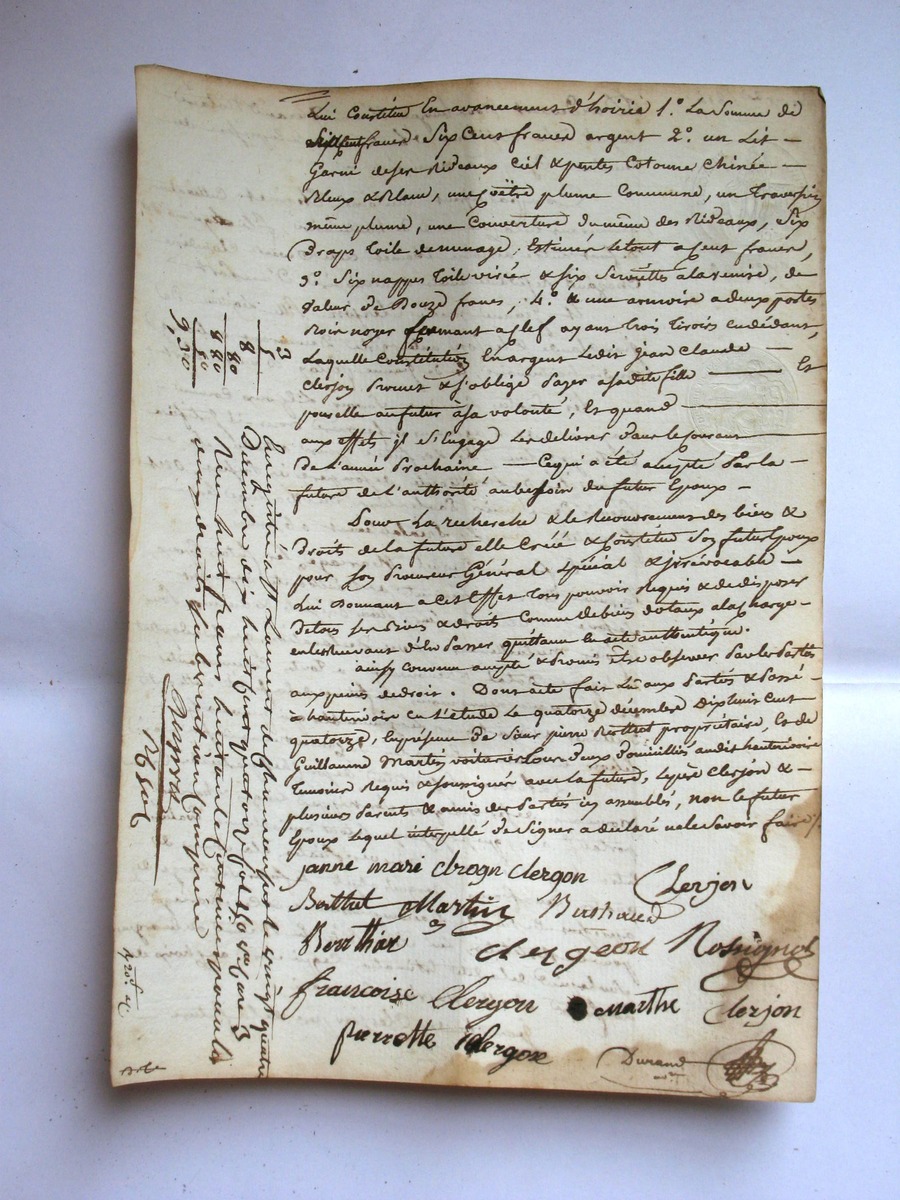 Lui Constitue En avancement d'hoirie 1.° La Somme de
Six Cent francs argent 2.° un Lit
Garni de ses Rideaux Ciel & pentes Cotonne Chinée
Bleux & Blanc, une Coëtre plume Commune, un Traversin
même plume, une Couverture du même des Rideaux, Six
Draps Toile de menage, Estimés le tout a Cent francs,
3.° Six nappes Toile & Six Serviettes a la Venise, de
Valeur de Douze francs, 4.° & une armoire a deux portes
Bois noyer fermant a Clef ayant Trois Tiroirs en dédant,
Laquelle Constitution En argent Ledit Jean Claude
Clerjon Promet & S'oblige Payer a sa dite fille Et
pour elle au futur à Sa volonté, Et quand
aux effets il S'Engage Les delivrer dans le Courant
De l'année Prochaine Ce qui a été accepté Par la
future de l'authorité au besoin du futur Epoux
Pour La recherche & le Recouvrement des biens &
Droits de la future elle Créé & Constitue Son futur Epoux
pour Son Procureur Général Spécial & irrévocable
Lui Donnant a Cet Effet Tous pouvoir Requis & de disposer
De tous Ses Biens & droits Comme de biens dotaux a la Charge
en les recevant d'En Passer quittance En acte authentique.
ainsy Convenu accepté & Promis Être observer Par les Parties
aux peines de droit. Dont acte fait Lû aux Parties & Passé
à hauterivoire En l'étude Le quatorze décembre Dix huit Cent
quatorze, En présence de Sieur pierre Berthet propriétaire, Et de
Guillaume Martin voiturier Tous deux Domiciliés audit hauterivoire
Temoins Requis & Soussignés avec la future, Le père Clerjon &
plusieurs Parents & amis des Parties icy assemblés, non le futur
Epoux Lequel interpellé de Signer a déclaré ne le Savoir faire
janne mari Clergon
Clerjon
Berthet Martin
Clergeon Rossignol
francoise Clergon Marthe Clerjon
pierrette Clergon
Durand
3
5
8
80
880
80
9,30
Enregistré à St Laurent de Chamousset le vingt quatre
Décembre dix huit cent quatorze
Reçu huit francs